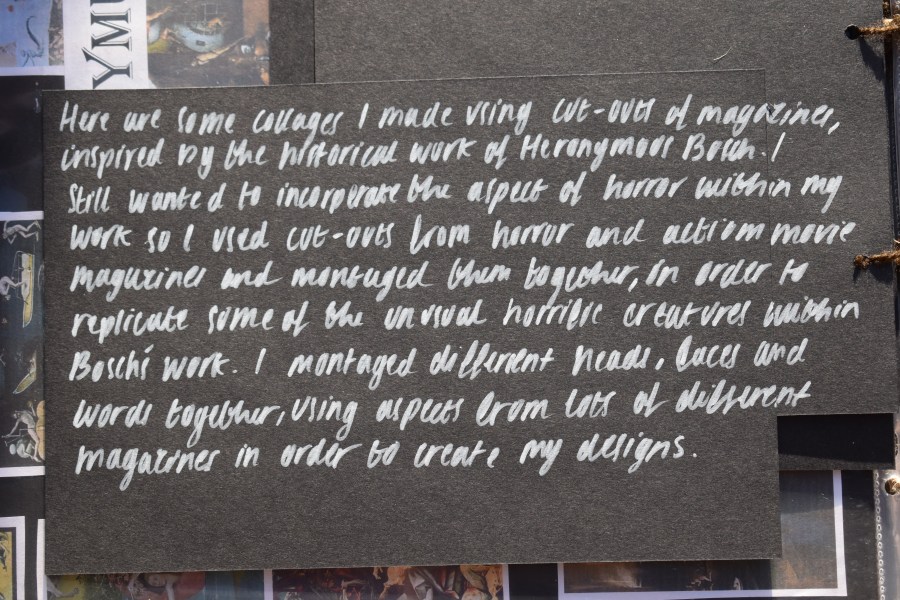 YMU
Here are some collages I made using cut-outs of magazines,
inspired by the historical work of Heronymous Bosch. I
Still wanted to incorporate the aspect of horror within my
work so I used cut-outs from horror and action movie
magazines and montaged them together, in order to
replicate some of the unusual horrific creatures within
Bosch's work. I montaged different heads, faces and
words together, using aspects from lots of different
magazines in order to create my designs.